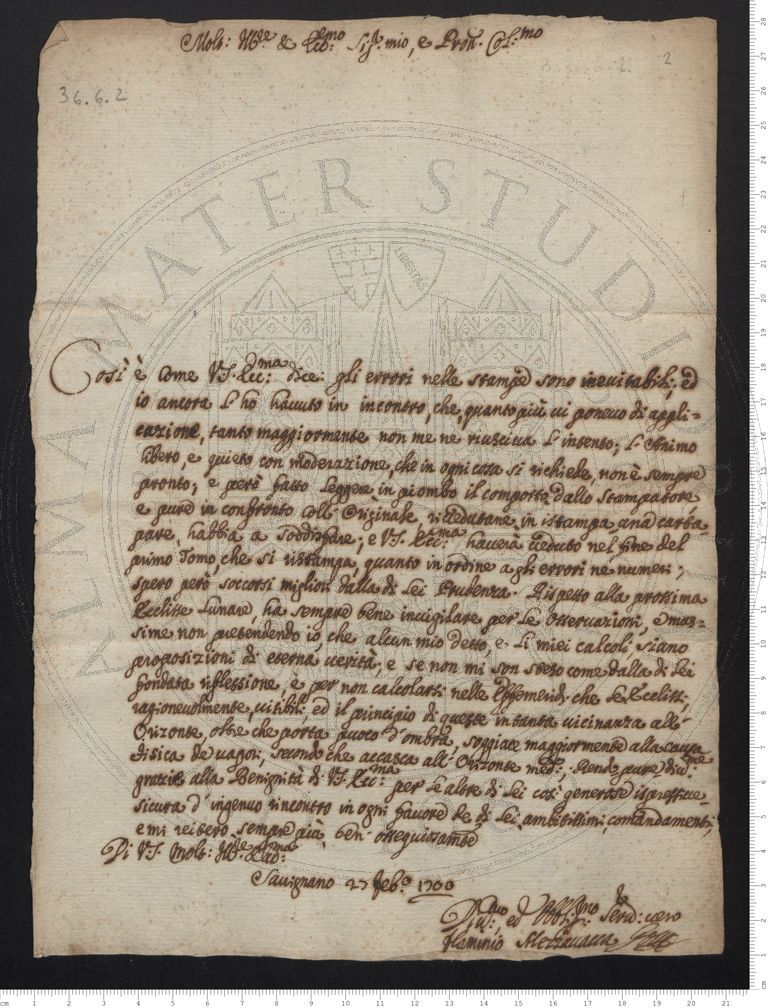 Molt: Ill:re & Ecc:mo Sig:r mio, e Pron: Col:mo
36.6.2
2
Così è come V.S. Ecc:ma dice: gli errori nelle stampe sono inevitabili; ed
io ancora l'ho havuto in incontro, che, quanto più vi ponevo di appli=
cazione, tanto maggiormente non me ne riusciva l'intento; l'Animo
libero, e quieto con moderazione, che in ogni cosa si richiede, non è sempre
pronto; e però fatto leggere in piombo il composto dallo Stampatore
e pure in confronto coll'Originale, vicedatane in istampa una carta
pare, habbia a soddisfare; e V.S. Ecc:ma haverà veduto nel fine del
primo Tomo, che si ristampa, quanto in ordine agli errori ne numeri;
spero però soccorsi migliori dalla di Lei Prudenza. Rispetto alla prossima
Ecclisse Lunare, ha sempre bene invigilare per le Osservazioni, e mas=
sime non pretendendo io, che alcun mio detto, e li miei calcoli siano
proposizioni di eterna verità; e se non mi son steso come dalla di Lei
fondata riflessione, è per non calcolarsi nelle Effemeridi che le Ecclissi,
ragionevolmente, visibili; ed il principio di queste in tanta vicinanza all'
Orizonte, oltre che porta puoco d'ombra, soggiace maggiormente alla causa
fisica de vapori, secondo che accasca all'Orizonte med:o; Rendo pure div:me
grazie alla Benignità di V.S. Ecc:ma per le altre di Lei così generose espressive,
sicura d'ingenuo rincontro in ogni favore de di Lei ambitissimi comandamenti;
e mi reitero sempre più ben' ossequiosam:te
Di V.S. Molt: Ill:re & Ecc:ma
Savignano 27 Feb:o 1700
Div:mo, ed Obbl:mo Serv: vero
Flaminio Mezzavacca
ALMA MATER STUDIORUM
LIBERTAS